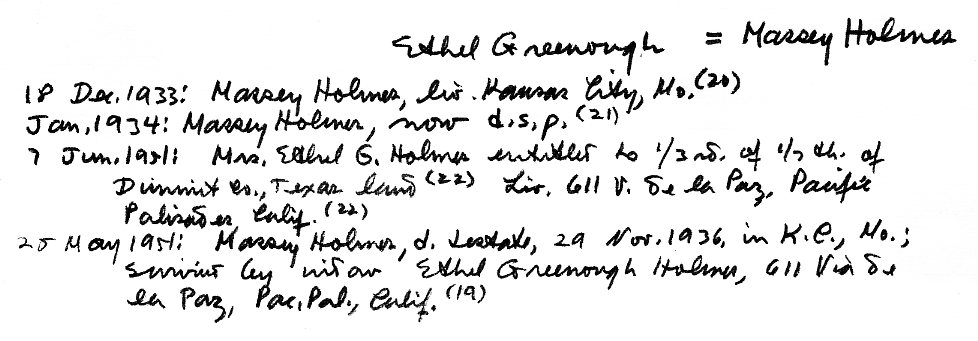 Ethel Greenough = Massey Holmes
18 Dec. 1933: Massey Holmes, liv. Kansas City, Mo. (20)
Jan, 1934: Massey Holmes, now d.s.p. (21)
7 Jun. 1951: Mrs. Ethel G. Holmes entitled to 1/3 rd. of 1/7 th. of
Dimmit Co., Texas land (22) Liv. 611 V. De la Paz, Pacific
Palisades Calif. (22)
25 May 1951: Massey Holmes, d. testate, 29 Nov. 1936, in K.C., Mo.;
by widow Ethel Greenough Holmes, 611 Via De
la Paz, Pac. Pal., Calif. (19)